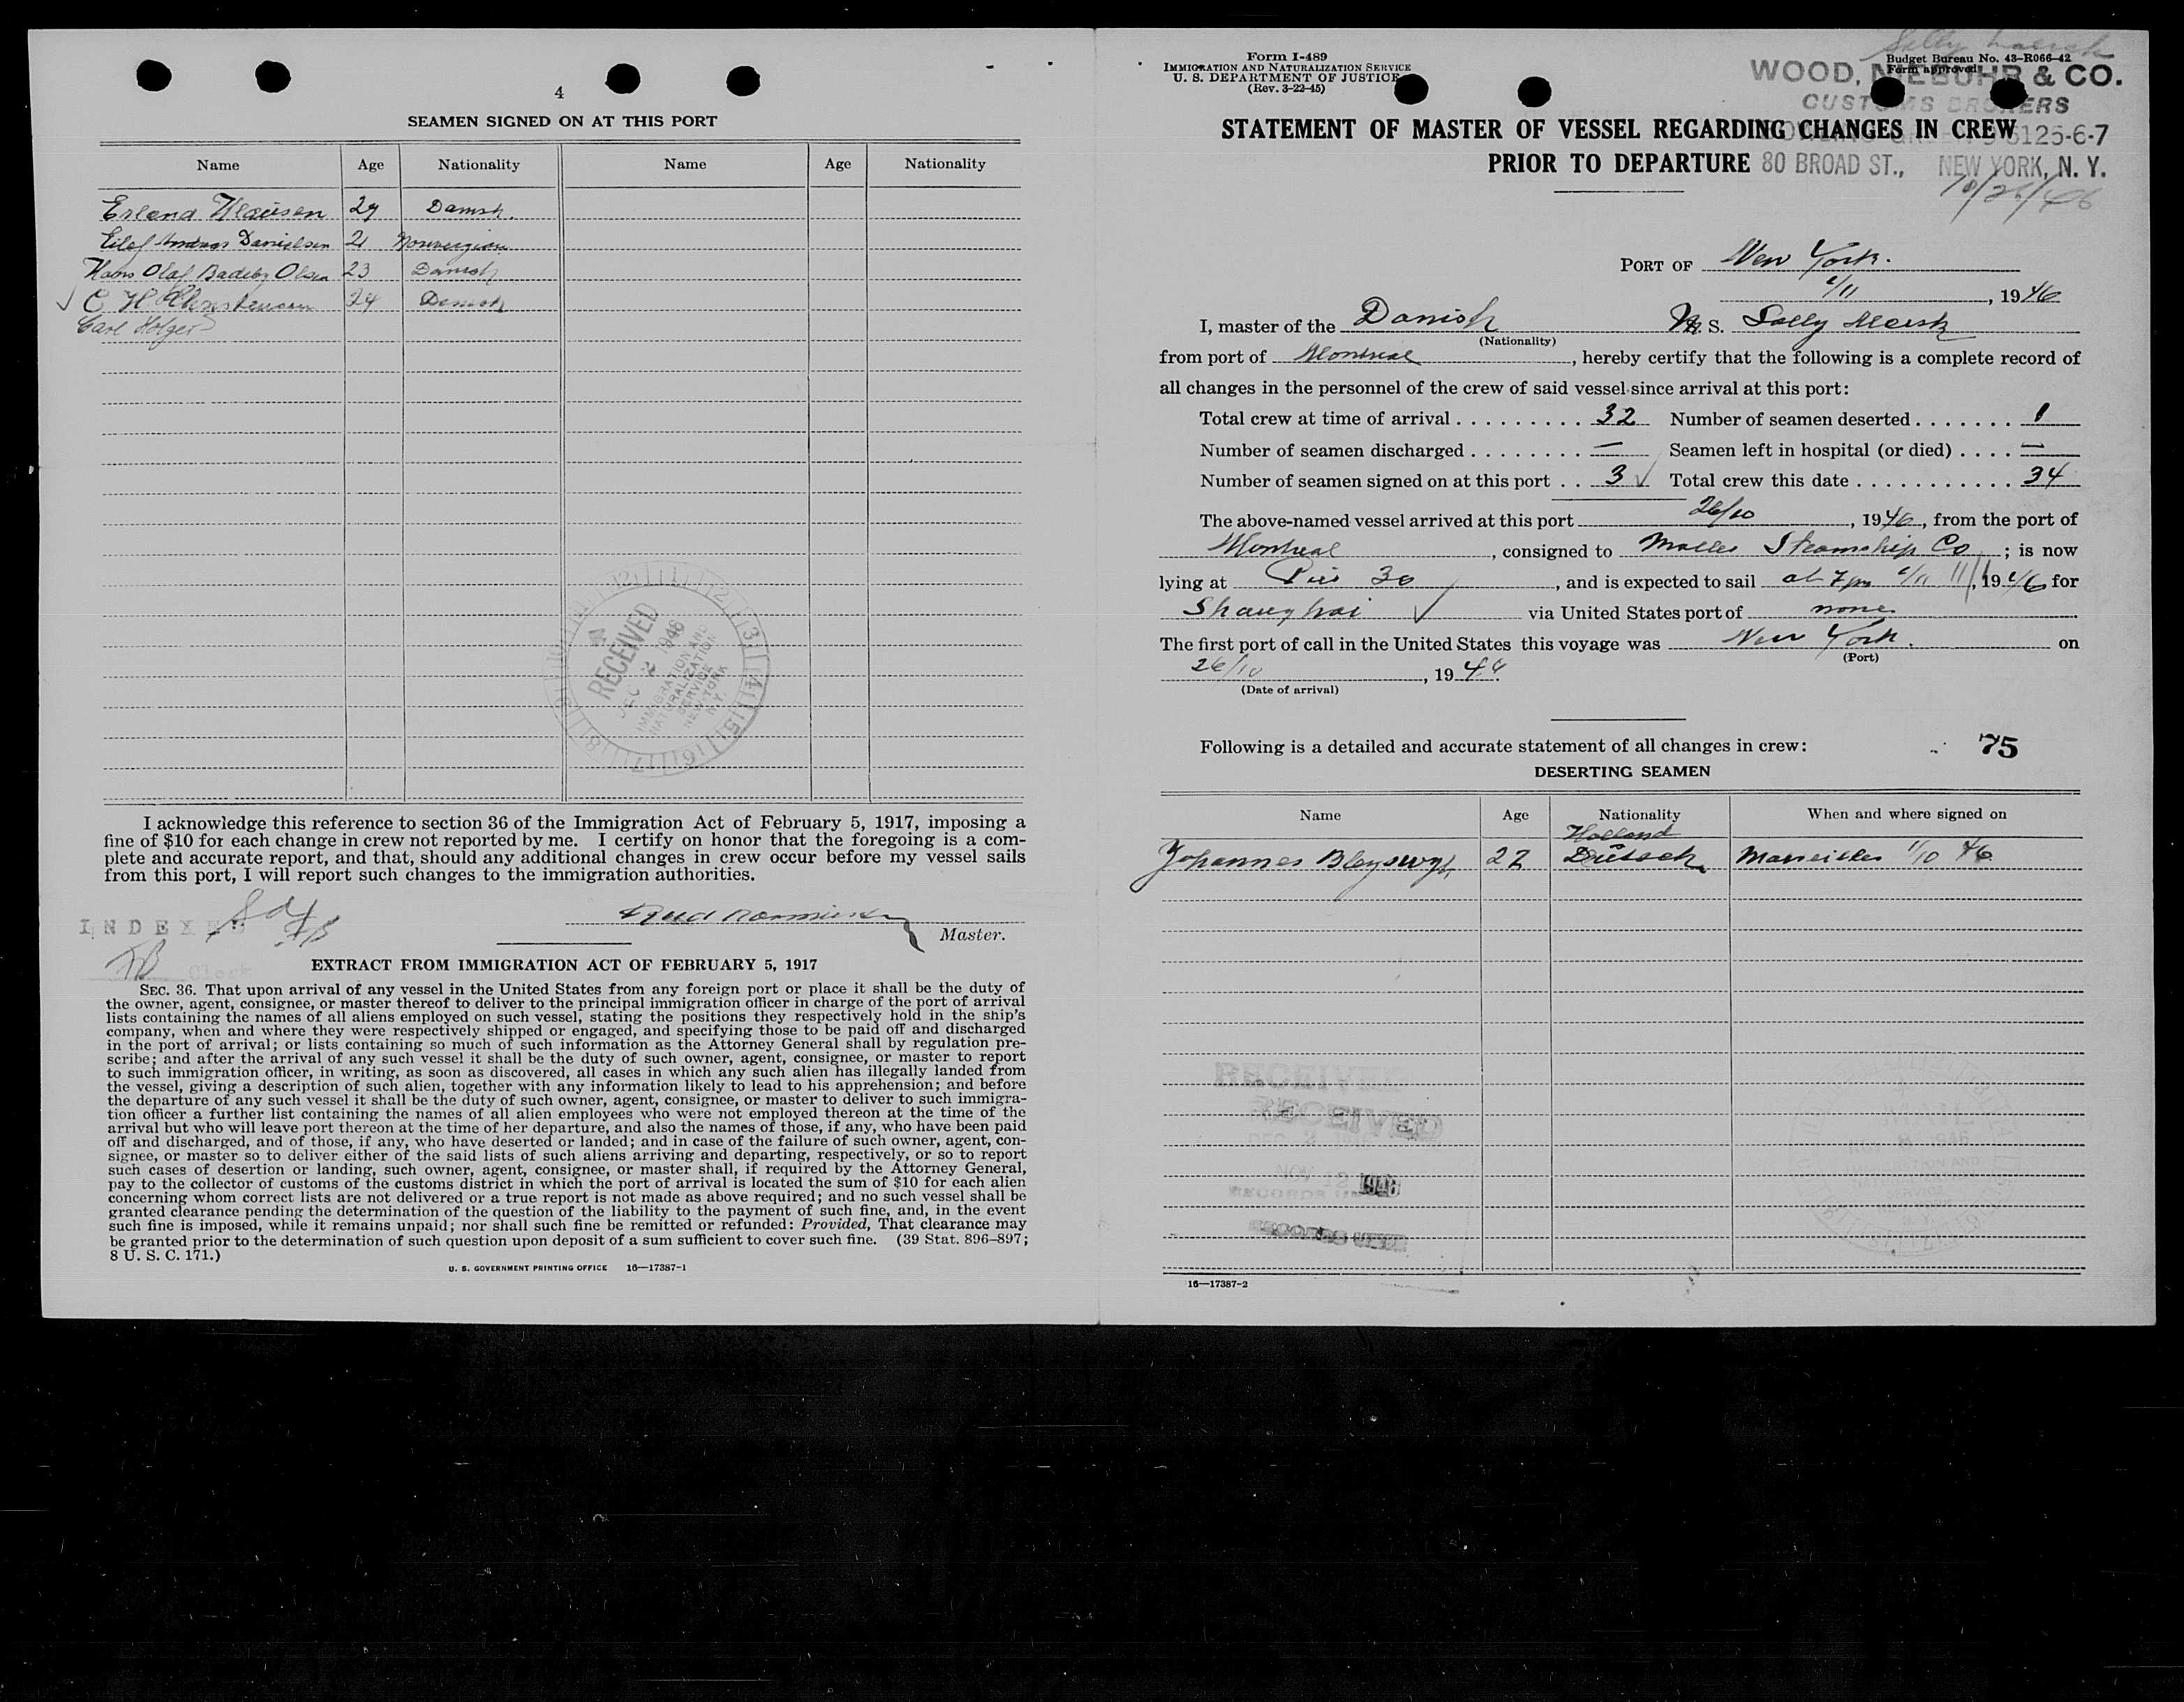 4
SEAMEN SIGNED ON AT THIS PORT
Name Age Nationality Name Age Nationality
Erland Klausen 29 Danish.
Eilef Andreas Danielsen 21 Norwegian
Hans Olaf Badeby Olsen 23 Danish
C. H. Christensen 24 Danish
Carl Holger
RECEIVED
DEC 2 1946
IMMIGRATION AND
NATURALIZATION
SERVICE
NEW YORK
N.Y.
I acknowledge this reference to section 36 of the Immigration Act of February 5, 1917, imposing a
fine of $10 for each change in crew not reported by me. I certify on honor that the foregoing is a com-
plete and accurate report, and that, should any additional changes in crew occur before my vessel sails
from this port, I will report such changes to the immigration authorities.
INDEXED
Master.
Clerk
EXTRACT FROM IMMIGRATION ACT OF FEBRUARY 5, 1917
SEC. 36. That upon arrival of any vessel in the United States from any foreign port or place it shall be the duty of
the owner, agent, consignee, or master thereof to deliver to the principal immigration officer in charge of the port of arrival
lists containing the names of all aliens employed on such vessel, stating the positions they respectively hold in the ship's
company, when and where they were respectively shipped or engaged, and specifying those to be paid off and discharged
in the port of arrival; or lists containing so much of such information as the Attorney General shall by regulation pre-
scribe; and after the arrival of any such vessel it shall be the duty of such owner, agent, consignee, or master to report
to such immigration officer, in writing, as soon as discovered, all cases in which any such alien has illegally landed from
the vessel, giving a description of such alien, together with any information likely to lead to his apprehension; and before
the departure of any such vessel it shall be the duty of such owner, agent, consignee, or master to deliver to such immigra-
tion officer a further list containing the names of all alien employees who were not employed thereon at the time of the
arrival but who will leave port thereon at the time of her departure, and also the names of those, if any, who have been paid
off and discharged, and of those, if any, who have deserted or landed; and in case of the failure of such owner, agent, con-
signee, or master so to deliver either of the said lists of such aliens arriving and departing, respectively, or so to report
such cases of desertion or landing, such owner, agent, consignee, or master shall, if required by the Attorney General,
pay to the collector of customs of the customs district in which the port of arrival is located the sum of $10 for each alien
concerning whom correct lists are not delivered or a true report is not made as above required; and no such vessel shall be
granted clearance pending the determination of the question of the liability to the payment of such fine, and, in the event
such fine is imposed, while it remains unpaid; nor shall such fine be remitted or refunded: Provided, That clearance may
be granted prior to the determination of such question upon deposit of a sum sufficient to cover such fine. (39 Stat. 896–897;
8 U. S. C. 171.)
U. S. GOVERNMENT PRINTING OFFICE 16—17387-1
Form I-489
IMMIGRATION AND NATURALIZATION SERVICE
U. S. DEPARTMENT OF JUSTICE
(Rev. 3-22-45)
Sally Maersk
Budget Bureau No. 43-R066-42
Form approved
WOOD, NIEBUHR & CO.
CUSTOMS BROKERS
STATEMENT OF MASTER OF VESSEL REGARDING CHANGES IN CREW
PRIOR TO DEPARTURE
80 BROAD ST., NEW YORK, N. Y.
10/26/46
PORT OF New York.
1/11, 1946
I, master of the Danish M. S. Sally Mersk
(Nationality)
from port of Montreal, hereby certify that the following is a complete record of
all changes in the personnel of the crew of said vessel since arrival at this port:
Total crew at time of arrival . . . . . . . . . 32 Number of seamen deserted . . . . . . . 1
Number of seamen discharged . . . . . . . . — Seamen left in hospital (or died) . . . . —
Number of seamen signed on at this port . . 3 ✓ Total crew this date . . . . . . . . . . . 34
The above-named vessel arrived at this port 26/10, 1946, from the port of
Montreal, consigned to Moller Steamship Co; is now
lying at Pier 30, and is expected to sail at 7 pm 1/11, 1946 for
Shanghai ✓ via United States port of none
The first port of call in the United States this voyage was New York. on
(Port)
26/10, 1946.
(Date of arrival)
Following is a detailed and accurate statement of all changes in crew: 75
DESERTING SEAMEN
Name Age Nationality When and where signed on
Holland
Johannes Bleyswyk 22 Deutsch Marseilles 1/10 46
RECEIVED
RECEIVED
DEC 2
NOV 12 1946
RECORDS UNIT
RECORDS UNIT
16—17387-2